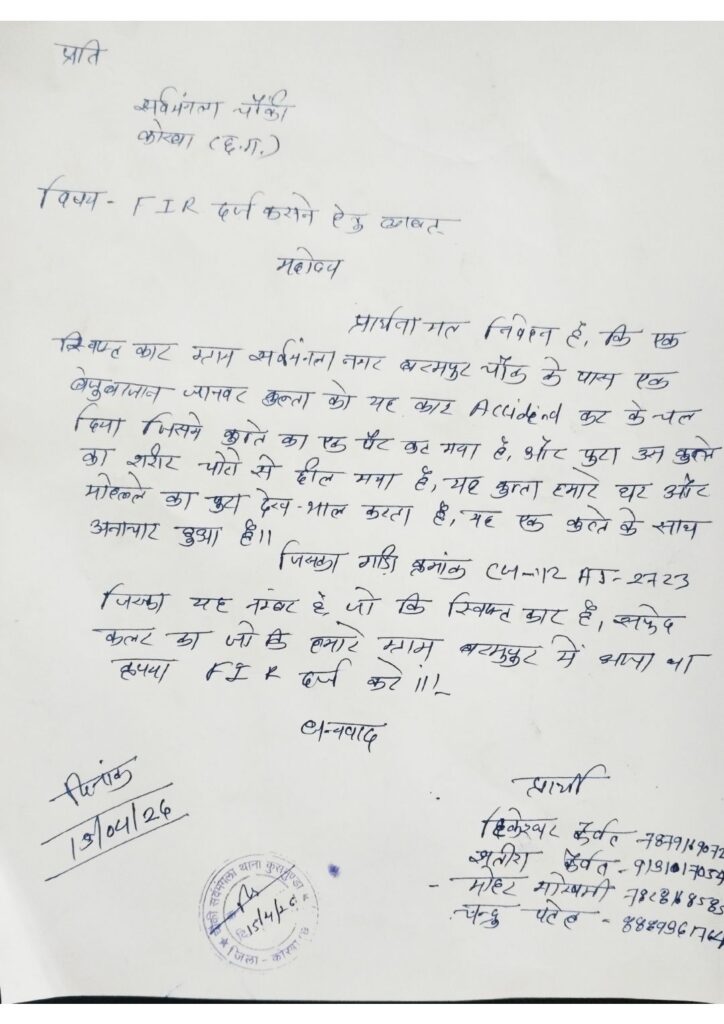 प्रति
सर्वमंगला चौकी
कोरबा (छ.ग.)
विषय - FIR दर्ज कराने हेतु बाबत्
महोदय
प्रार्थना मत निवेदन है, कि एक
स्विफ्ट कार ग्राम सर्वमंगला नगर बरमपुर चौंक के पास एक
बेजुबाजान जानवर कुत्ता को यह कार Accidend कर के चल
दिया जिससे कुत्ते का एक पैर कट गया है, और पुरा उस कुत्ते
का शरीर चोटो से दील गया है, यह कुत्ता हमारे घर और
मोहल्ले का पुरा देख-भाल करता है, यह एक कुत्ते के साथ
अनाचार हुआ है।।
जिसका गाड़ी क्रमांक CJ-12 AJ-2723
जिसका यह नम्बर है, जो कि स्विफ्ट कार है, सफेद
कलर का जो कि हमारे ग्राम बरमपुर में आया था
कृपया FIR दर्ज करे।।!_
धन्यवाद
दिनांक
15/04/26
प्रार्थी
केवट - 787916907
केवट - 913101705
- मोहर 782816858
चन्द्रु पटेल - 888996176
चौकी सर्वमंगला थाना कुसमुण्डा
दि. 15/4/26
★ जिला - कोरबा